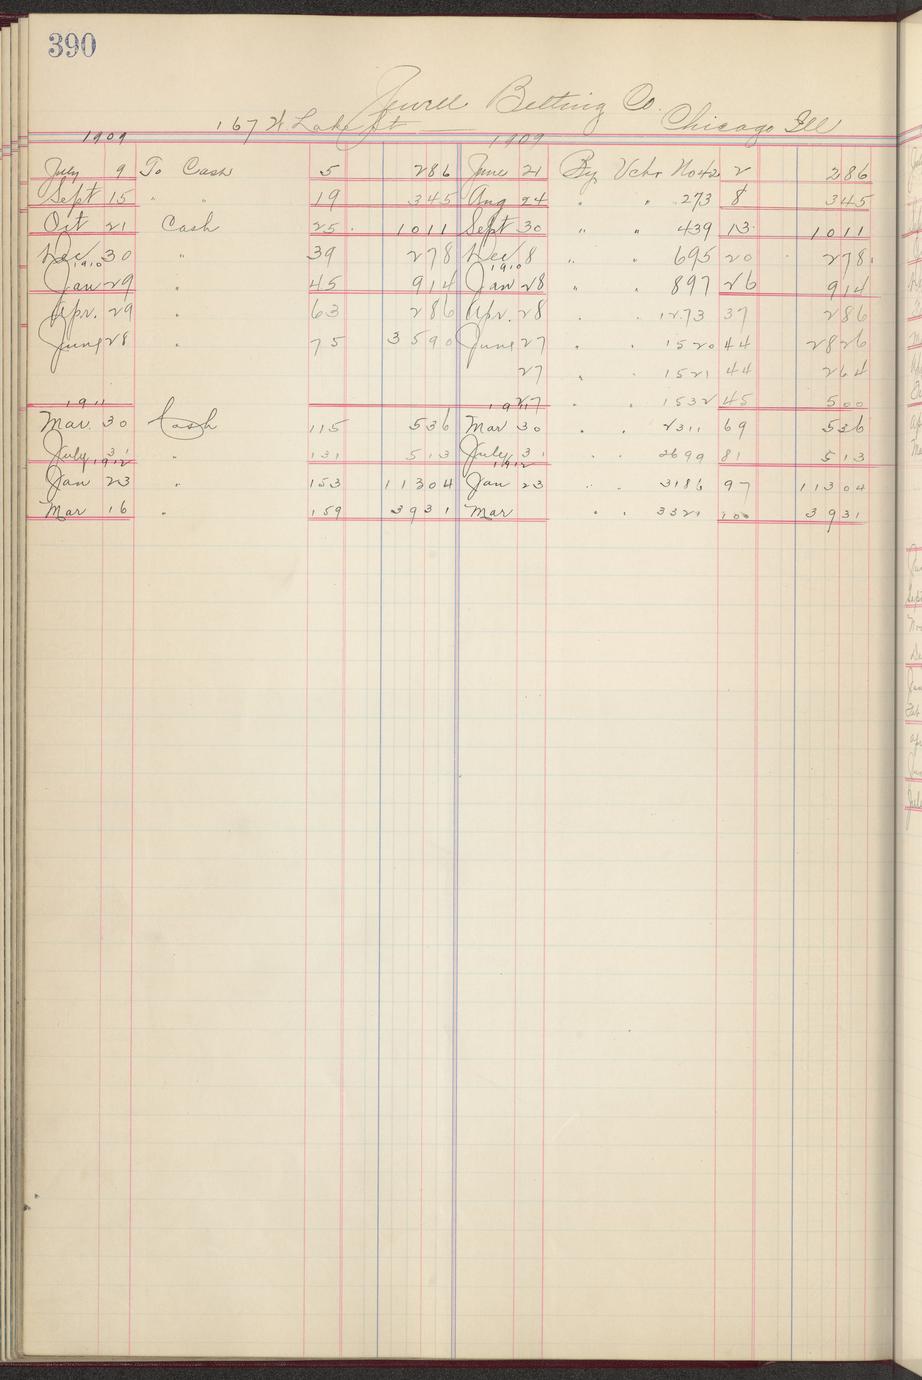 390
Jewell Belting Co.
167 W Lake St Chicago Ill
1909 1909
July 9 To Cash 5 286 June 21 By Vchr No 42 2 286
Sept 15 " " 19 345 Aug 24 " " 273 8 345
Oct 21 Cash 25 1011 Sept 30 " " 439 13 1011
Dec 30 " 39 278 Dec 8 " " 695 20 278
1910 1910
Jan 29 " 45 914 Jan 28 " " 897 26 914
Apr. 29 " 63 286 Apr. 28 " " 1273 37 286
June 28 " 75 3590 June 27 " " 1520 44 2826
27 " " 1521 44 264
27 " " 1532 45 500
1911 1911
Mar. 30 Cash 115 536 Mar 30 " " 2311 69 536
July 31 " 131 513 July 31 " " 2699 81 513
1912 1912
Jan 23 " 153 11304 Jan 23 " " 3186 97 11304
Mar 16 " 159 3931 Mar " " 3321 100 3931